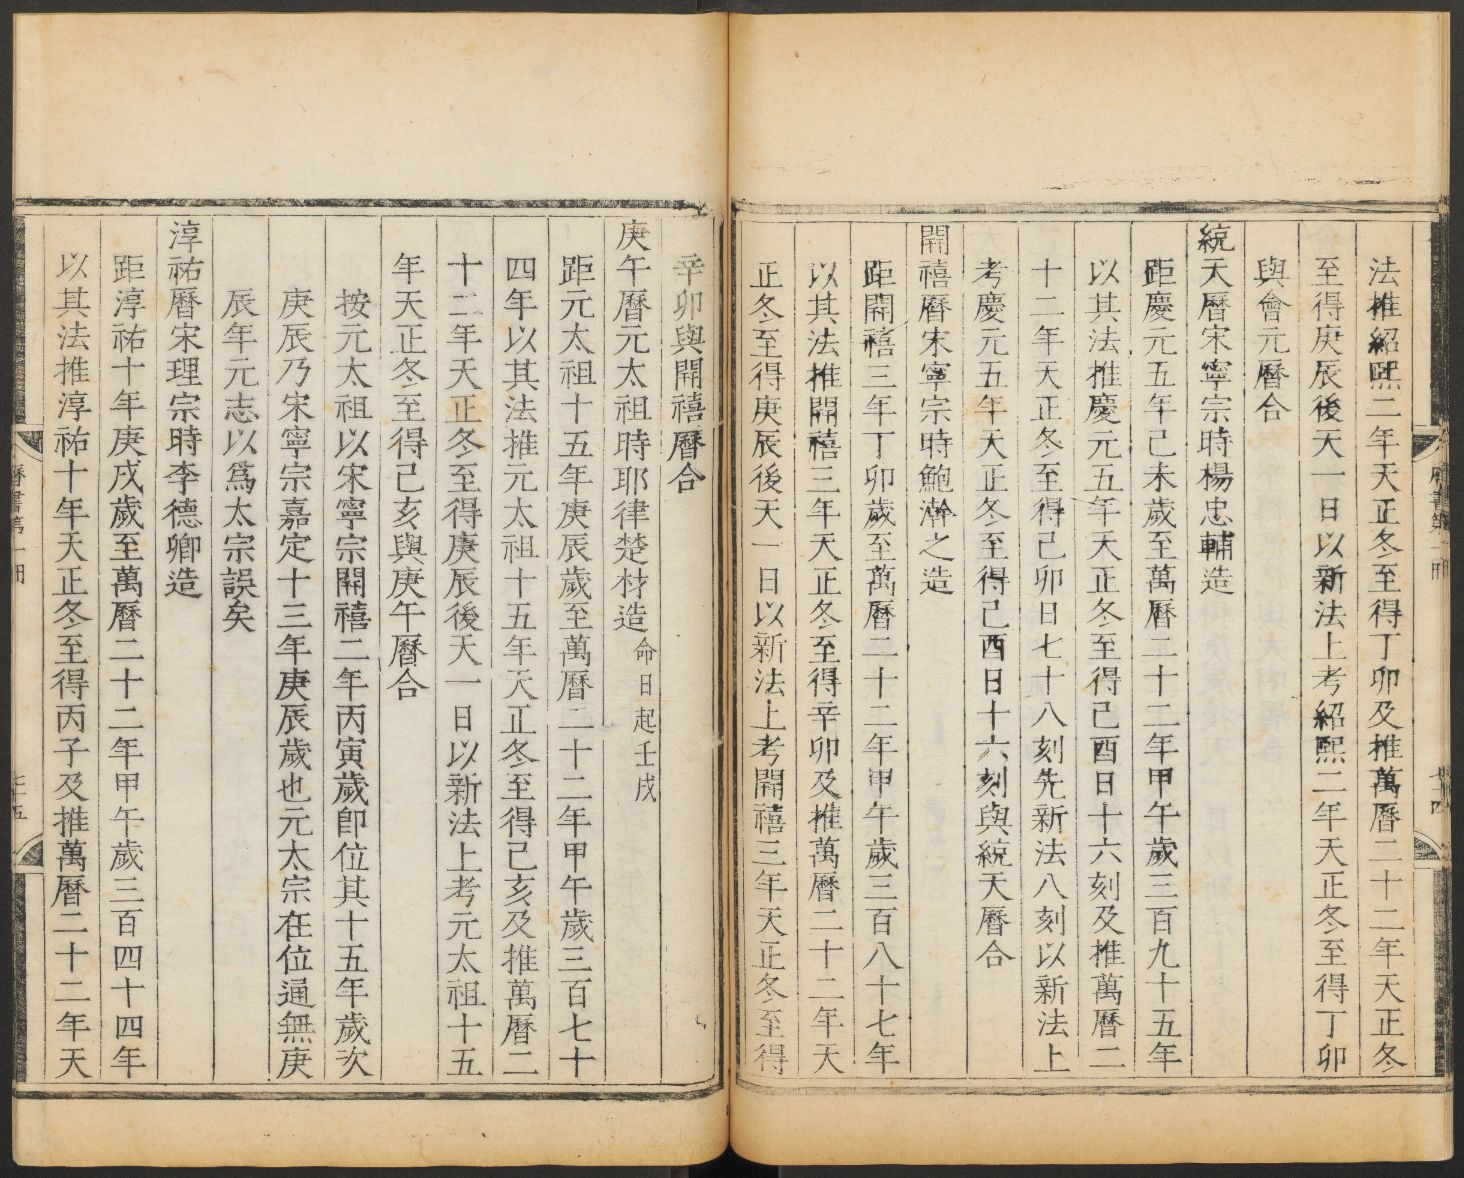 法推紹熙二年天正冬至得丁卯及推萬曆二十二年天正冬
至得庚辰後天一日以新法上考紹熙二年天正冬至得丁卯
與會元曆合
統天曆宋寧宗時楊忠輔造
距慶元五年己未歲至萬曆二十二年甲午歲三百九十五年
以其法推慶元五年天正冬至得己酉日十六刻及推萬曆二
十二年天正冬至得己卯日七十八刻先新法八刻以新法上
考慶元五年天正冬至得己酉日十六刻與統天曆合
開禧曆宋寧宗時鮑澣之造
距開禧三年丁卯歲至萬曆二十二年甲午歲三百八十七年
以其法推開禧三年天正冬至得辛卯及推萬曆二十二年天
正冬至得庚辰後天一日以新法上考開禧三年天正冬至得
辛卯與開禧曆合
庚午曆元太祖時耶律楚材造命日起壬戌
距元太祖十五年庚辰歲至萬曆二十二年甲午歲三百七十
四年以其法推元太祖十五年天正冬至得己亥及推萬曆二
十二年天正冬至得庚辰後天一日以新法上考元太祖十五
年天正冬至得己亥與庚午曆合
按元太祖以宋寧宗開禧二年丙寅歲卽位其十五年歲次
庚辰乃宋寧宗嘉定十三年庚辰歲也元太宗在位通無庚
辰年元志以爲太宗誤矣
淳祐曆宋理宗時李德卿造
距淳祐十年庚戌歲至萬曆二十二年甲午歲三百四十四年
以其法推淳祐十年天正冬至得丙子及推萬曆二十二年天
曆書第一冊
七十五